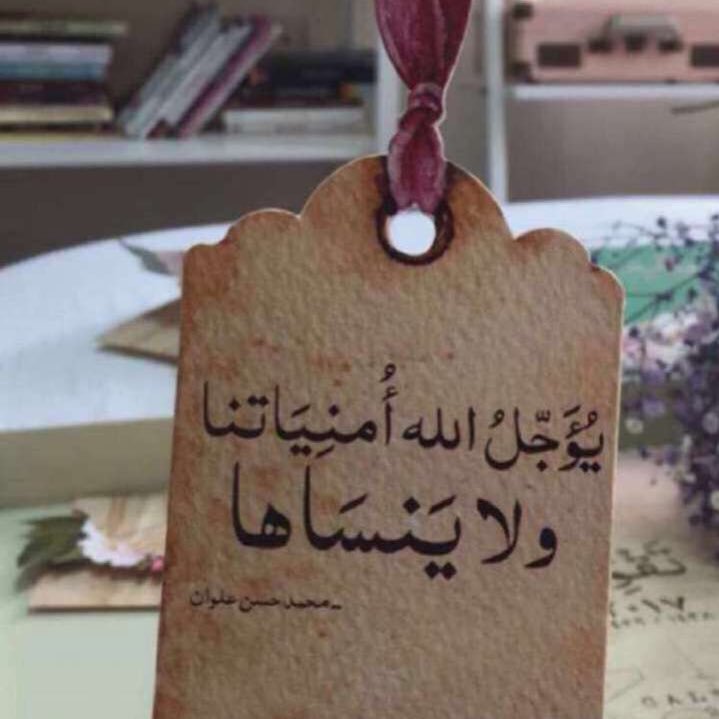 يُؤَجِّلُ الله أُمنِيَاتنا
ولا يَنسَاها
ـ محمد حسن علوان
٢٠١٧